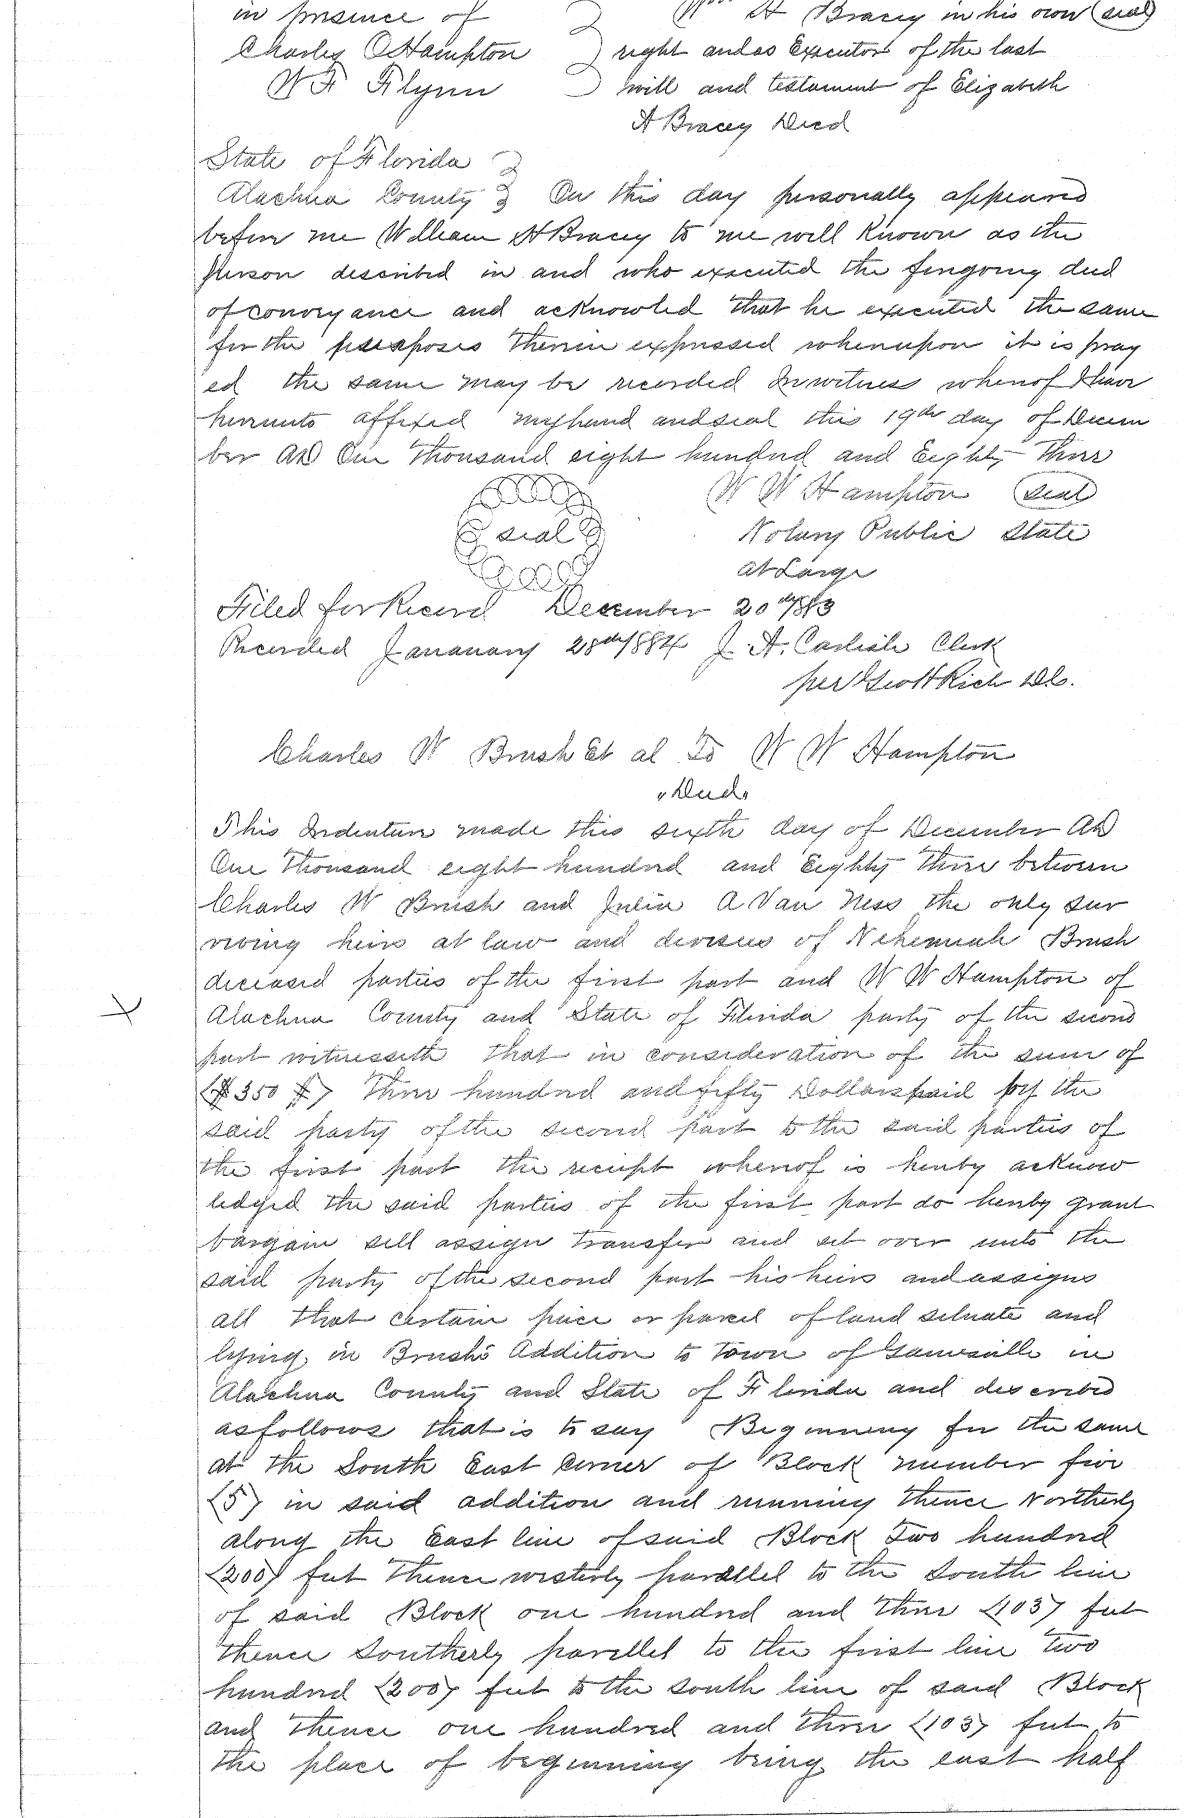 in presence of Wm H Bracey in his own (seal)
Charley O Hampton right and as Executor of the last
W F Flynn will and testament of Elizabeth
A Bracey Decd
State of Florida
Alachua County On this day personally appeared
before me William H Bracey to me well Known as the
person described in and who executed the foregoing deed
of conveyance and acknowled that he executed the same
for the purposes therein expressed whereupon it is pray
ed the same may be recorded In witness whereof I have
hereunto affixed my hand and seal this 19th day of Decem
ber AD One thousand eight hundred and Eighty Three
W W Hampton (seal)
seal Notary Public State
at Large
Filed for Record December 20th/883
Recorded Janauary 28th/884 J. A. Carlisle Clerk
per Scott Rich D.C.
Charles W Brush Et al To W W Hampton
"Deed"
This Indenture made this sixth day of December AD
One thousand eight hundred and Eighty three between
Charles W Brush and Julia A Van Ness the only sur
viving heirs at law and devisees of Nehemiah Brush
deceased parties of the first part and W W Hampton of
Alachua County and State of Florida party of the second
part witnesseth that in consideration of the sum of
($350 $) Three hundred and fifty Dollars paid by the
said party of the second part to the said parties of
the first part the receipt whereof is hereby acknow
ledged the said parties of the first part do hereby grant
bargain sell assign transfer and set over unto the
said party of the second part his heirs and assigns
all that certain piece or parcel of land situate and
lying in Brush's Addition to Town of Gainesville in
Alachua County and State of Florida and described
as follows that is to say Beginning for the same
at the South East Corner of Block number five
(5) in said addition and running thence Northerly
along the East line of said Block Two hundred
(200) feet Thence westerly parallel to the South line
of said Block one hundred and three (103) feet
thence Southerly parellel to the first line two
hundred (200) feet to the south line of said Block
and thence one hundred and three (103) feet to
the place of beginning being the east half